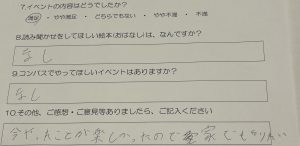 7.イベントの内容はどうでしたか？
満足 ・ やや満足 ・ どちらでもない ・ やや不満 ・ 不満
8.読み聞かせをしてほしい絵本(おはなし)は、なんですか？
なし
9.コンパスでやってほしいイベントはありますか？
なし
10.その他、ご感想・ご意見等ありましたら、ご記入ください
今やったことが楽しかったので家でもやりたい